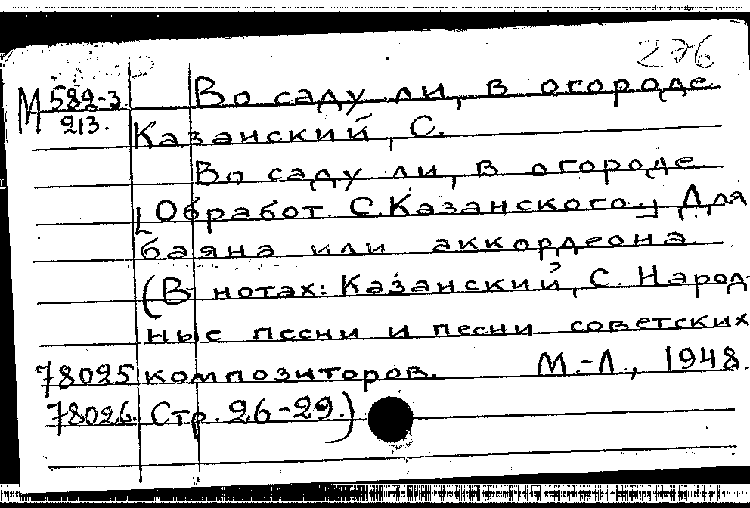 276
М 582-3 Во саду ли, в огороде.
213. Казанский, С.
Во саду ли, в огороде.
[Обработ С. Казанского.] Для
баяна или аккордеона.
(В нотах: Казанский, С. Народ-
ные песни и песни советских
78025 композиторов. М.-Л., 1948.
78026 Стр. 26-29.)